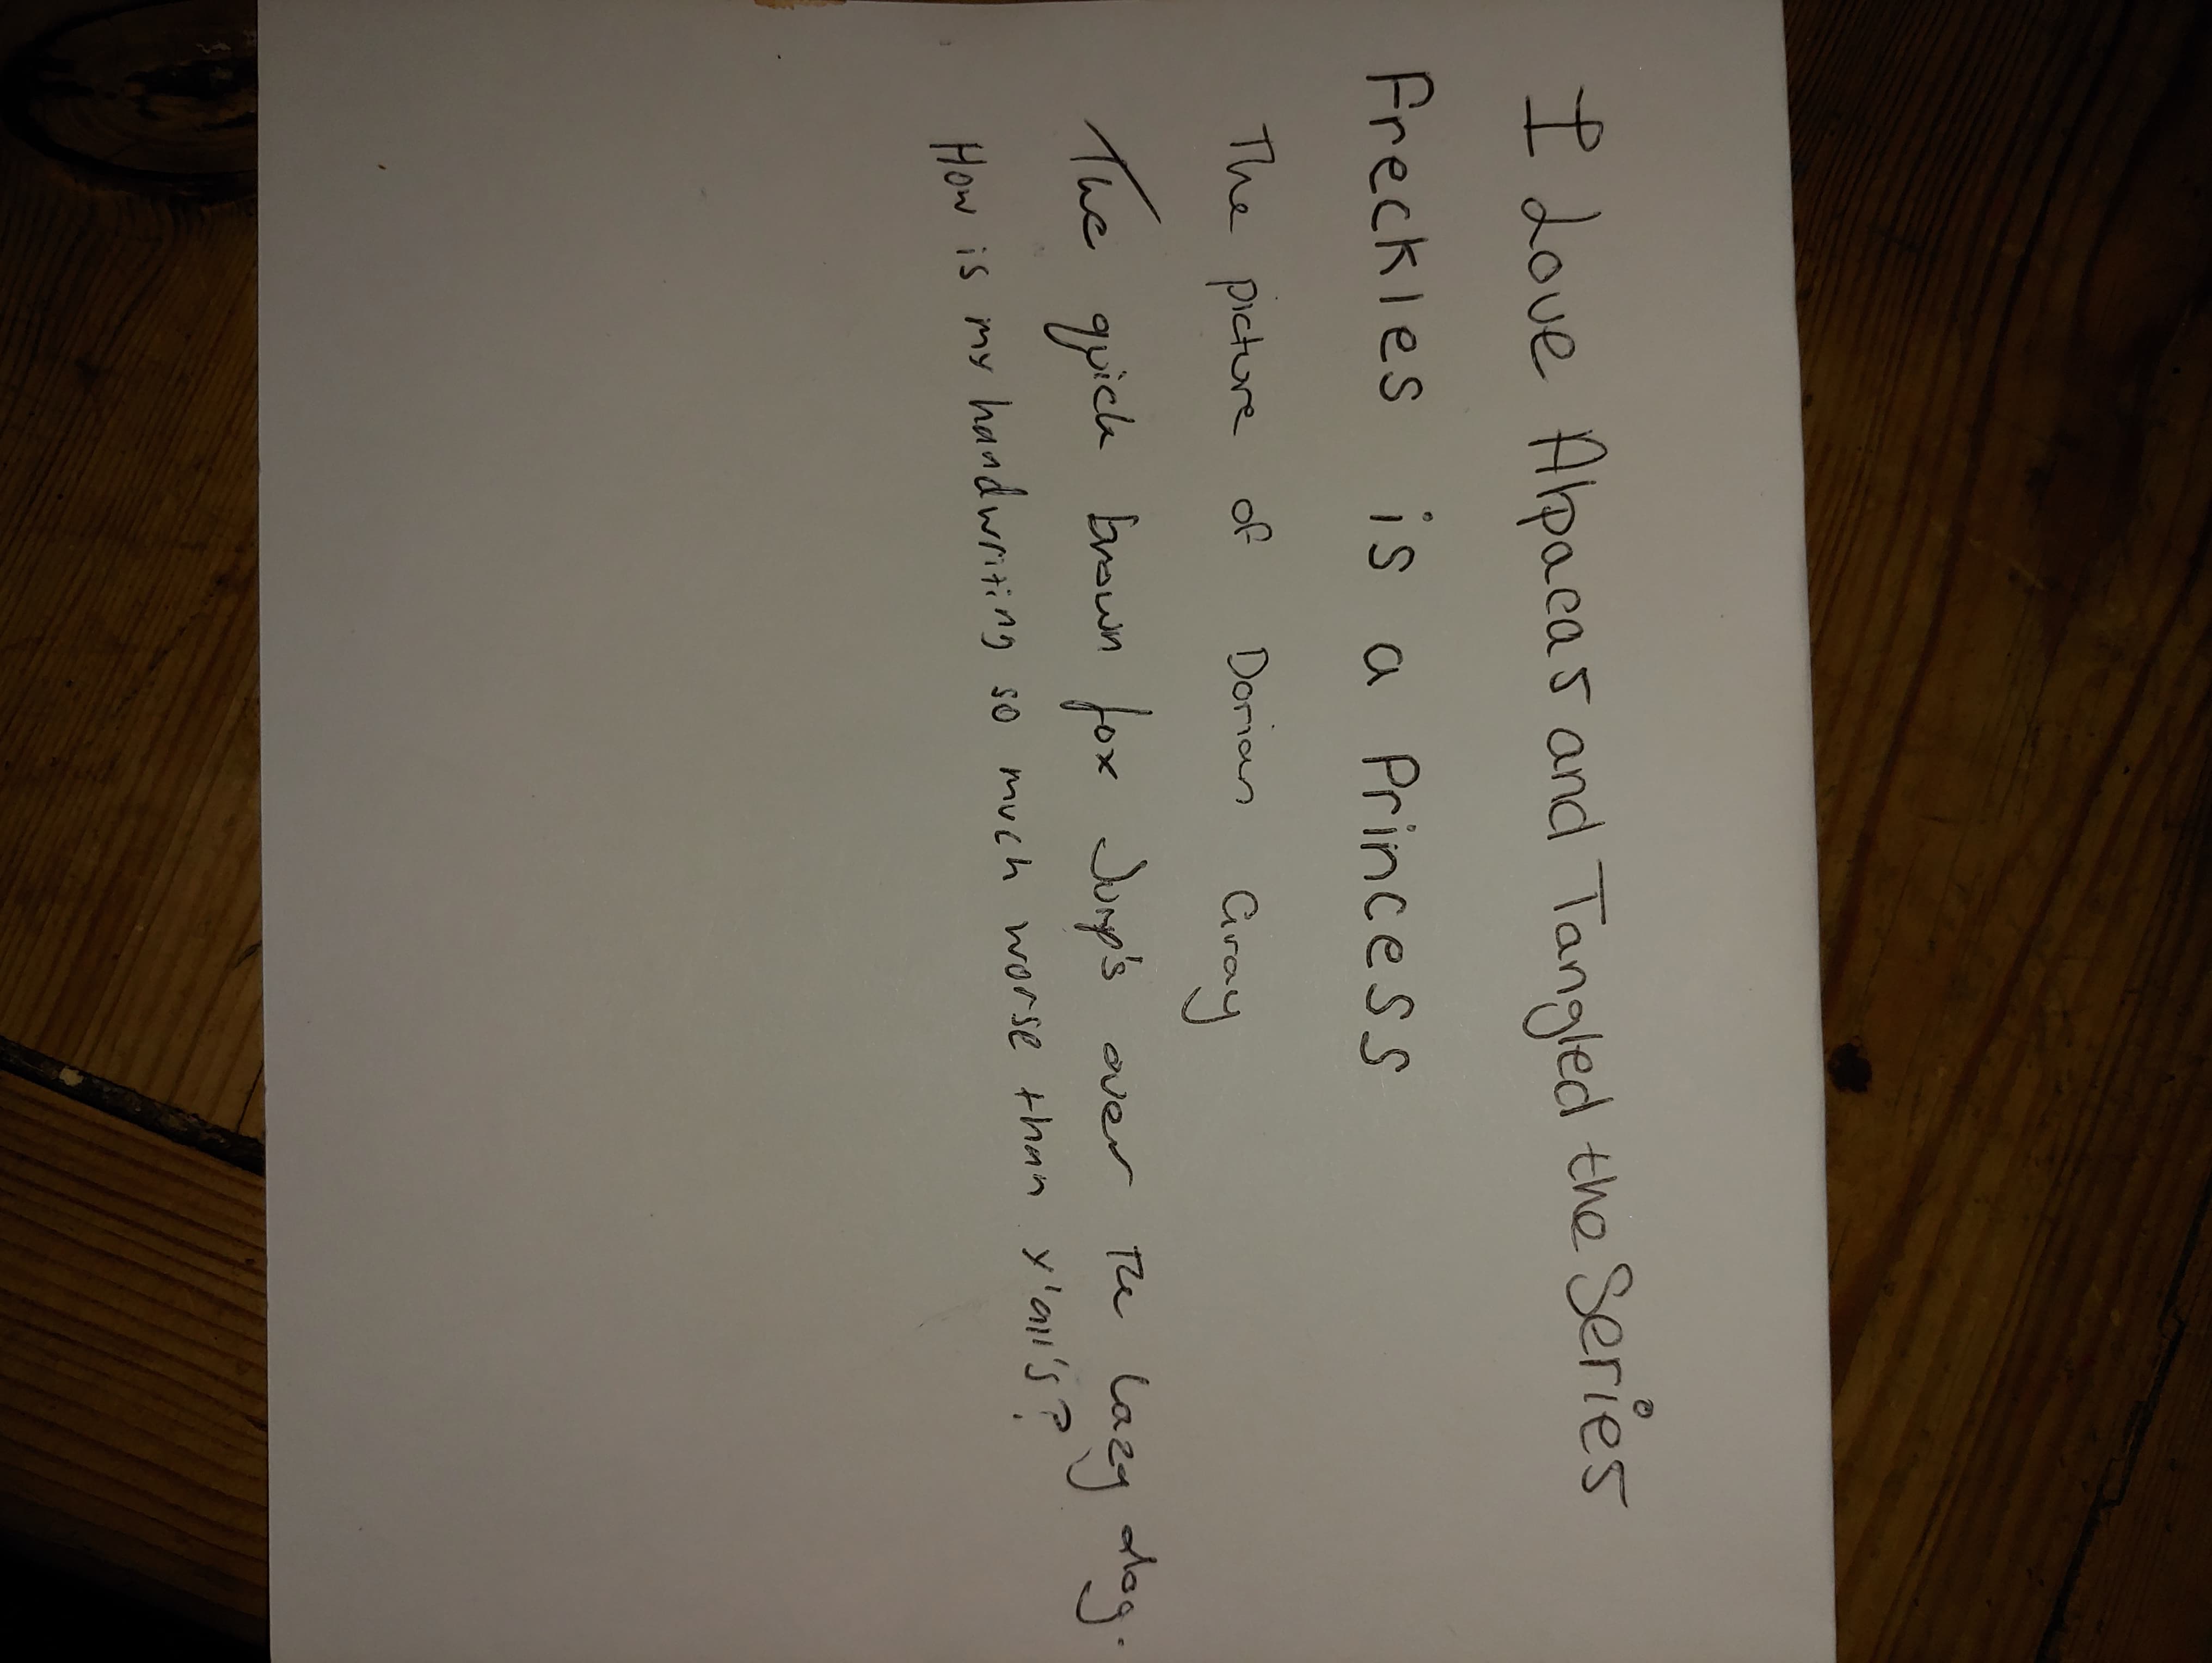 I Love Alpacas and Tangled the Series
Freckles is a Princess
The picture of Dorian Gray
The quick brown fox Jump's over the lazy dog.
How is my handwriting so much worse than y'all's?